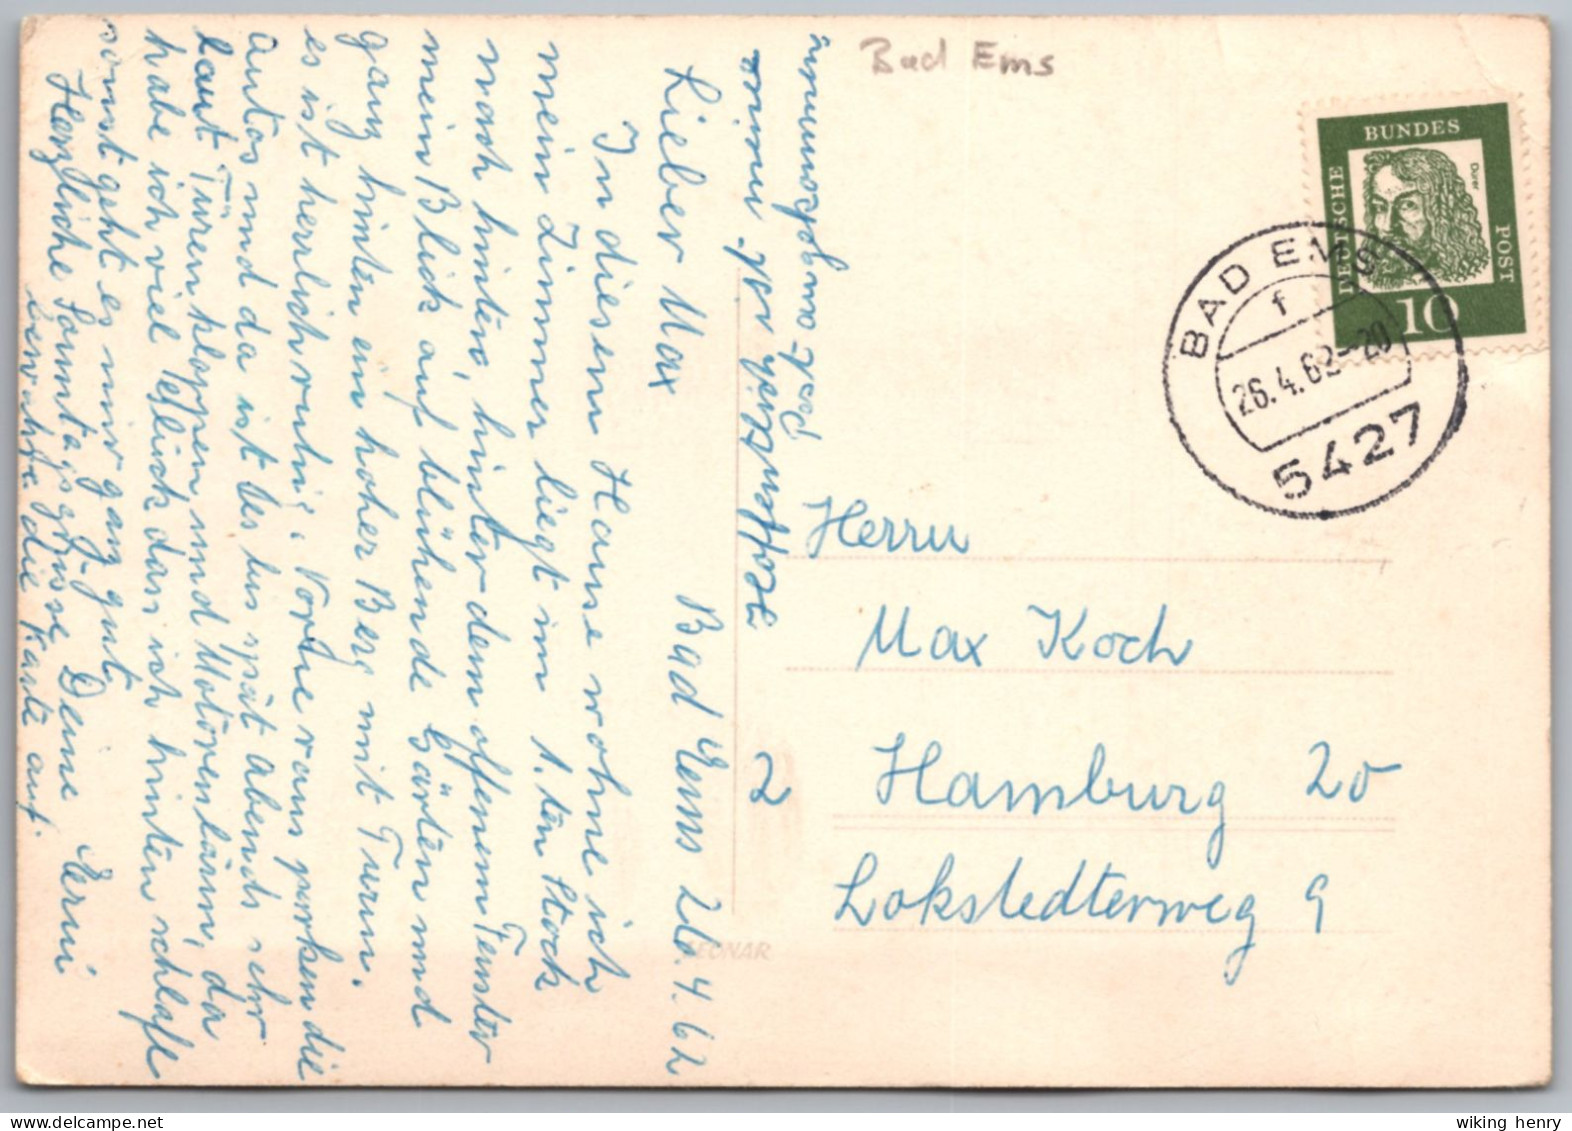 Bad Ems
DEUTSCHE BUNDES POST
Dürer
10
BAD EMS
f
26.4.62-20
5427
Herrn
Max Koch
2 Hamburg 20
Lokstedterweg 9
LEONAR
Hoffentlich ist
Post angekommen
Lieber Max Bad Ems 26.4.62
In diesem Hause wohne ich
mein Zimmer liegt im 1.ten Stock
nach hinten, hinter dem offenem Fenster
mein Blick auf blühende Gärten und
ganz hinten ein hoher Berg mit Turm.
es ist herrlich ruhig. Vorne raus parken die
Autos und da ist es bis spät Abends sehr
laut Türen kloppen und Motorenlärm, da
habe ich viel Glück das ich hinten schlafe
sonst geht es mir ganz gut.
Herzliche Sonntagsgrüsse Deine Erni
bewahre die Karte auf.